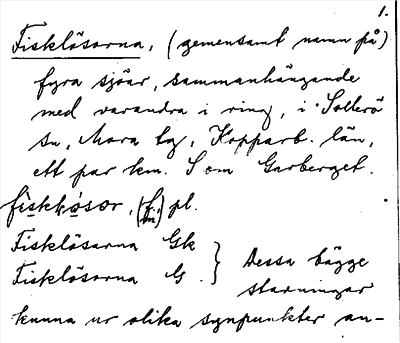 1.
Fisklösarna, (gemensamt namn på)
fyra sjöar, sammanhängande
med varandra i ring, i Sollerö
sn, Mora tg, Kopparb. län,
ett par km. S om Garberget.
fiskḷösor, (f.) pl.
Fisklösarna Gk
Fisklösarna G. } Dessa bägge
stavningar
kunna ur olika synpunkter an-